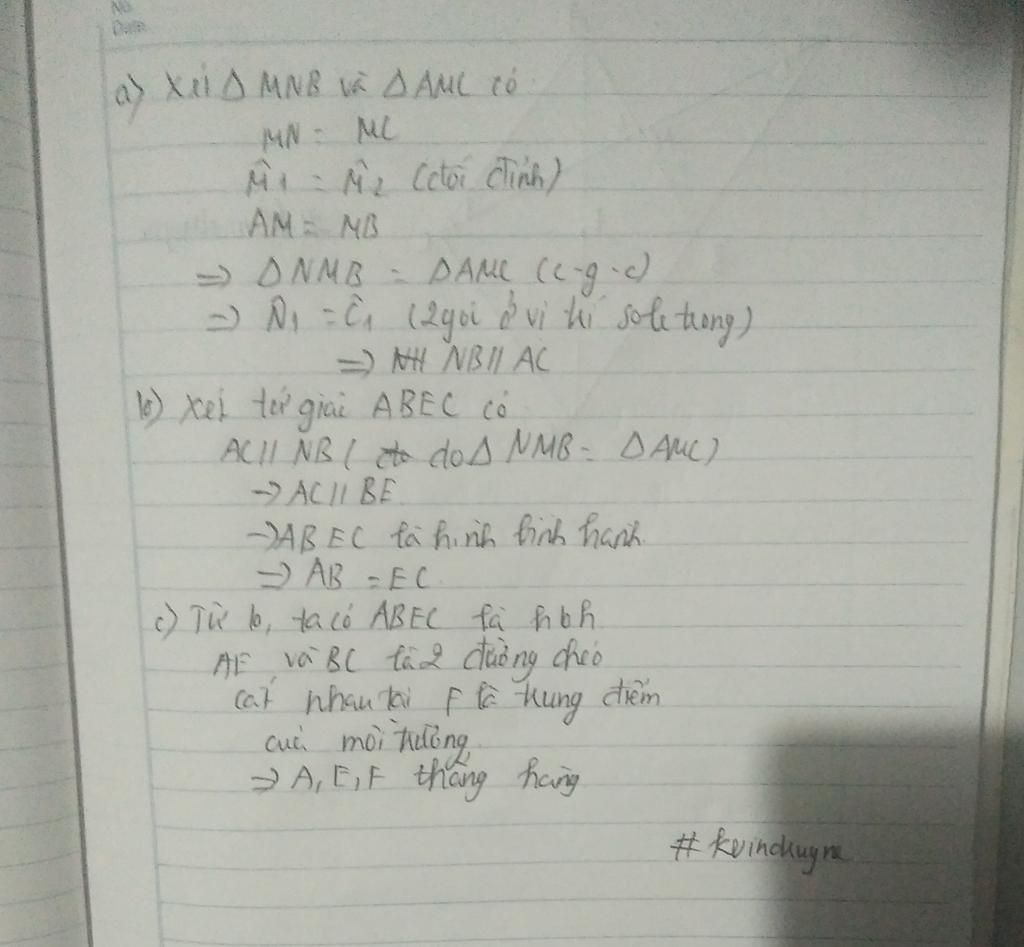 No.
Date
a) Xét Δ MNB và Δ AMC có
MN = MC
M̂1 = M̂2 (đối đỉnh)
AM = MB
=> Δ NMB = Δ AMC (c-g-c)
=> N̂1 = Ĉ1 (2 gói ở vị trí sole trong)
=> NB // AC
b) Xét tứ giai ABEC có
AC // NB ( do Δ NMB = Δ AMC)
-> AC // BE
-> ABEC là hình bình hành
=> AB = EC
c) Từ b, ta có ABEC là hbh
AE và BC là 2 đường chéo
cắt nhau tại F là trung điểm
của mỗi đường
=> A, E, F thẳng hàng